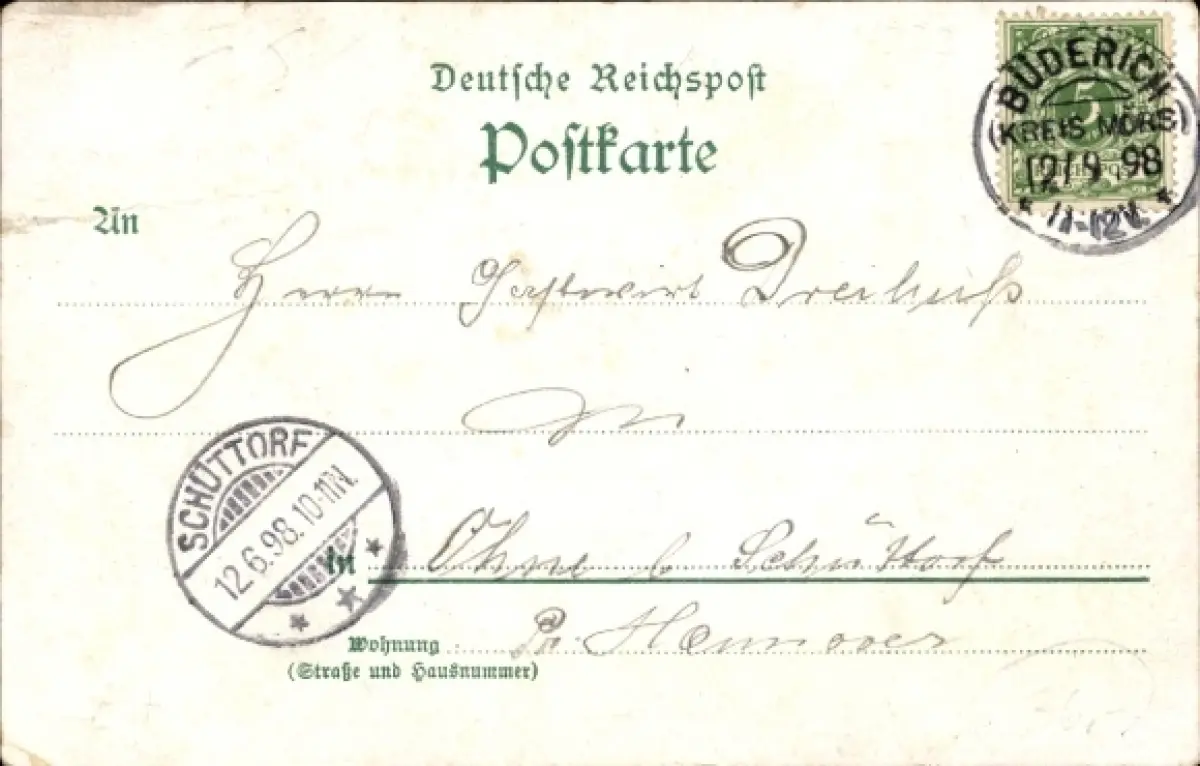 Deutsche Reichspost
Postkarte
5
BÜDERICH
(KREIS MÖRS)
12/9 98
* 11-12V. *
An
Herrn Gastwirt
SCHÜTTORF
12.6.98.10-11N.
In Ohne b Schüttorf
Wohnung Pr. Hannover
(Straße und Hausnummer)